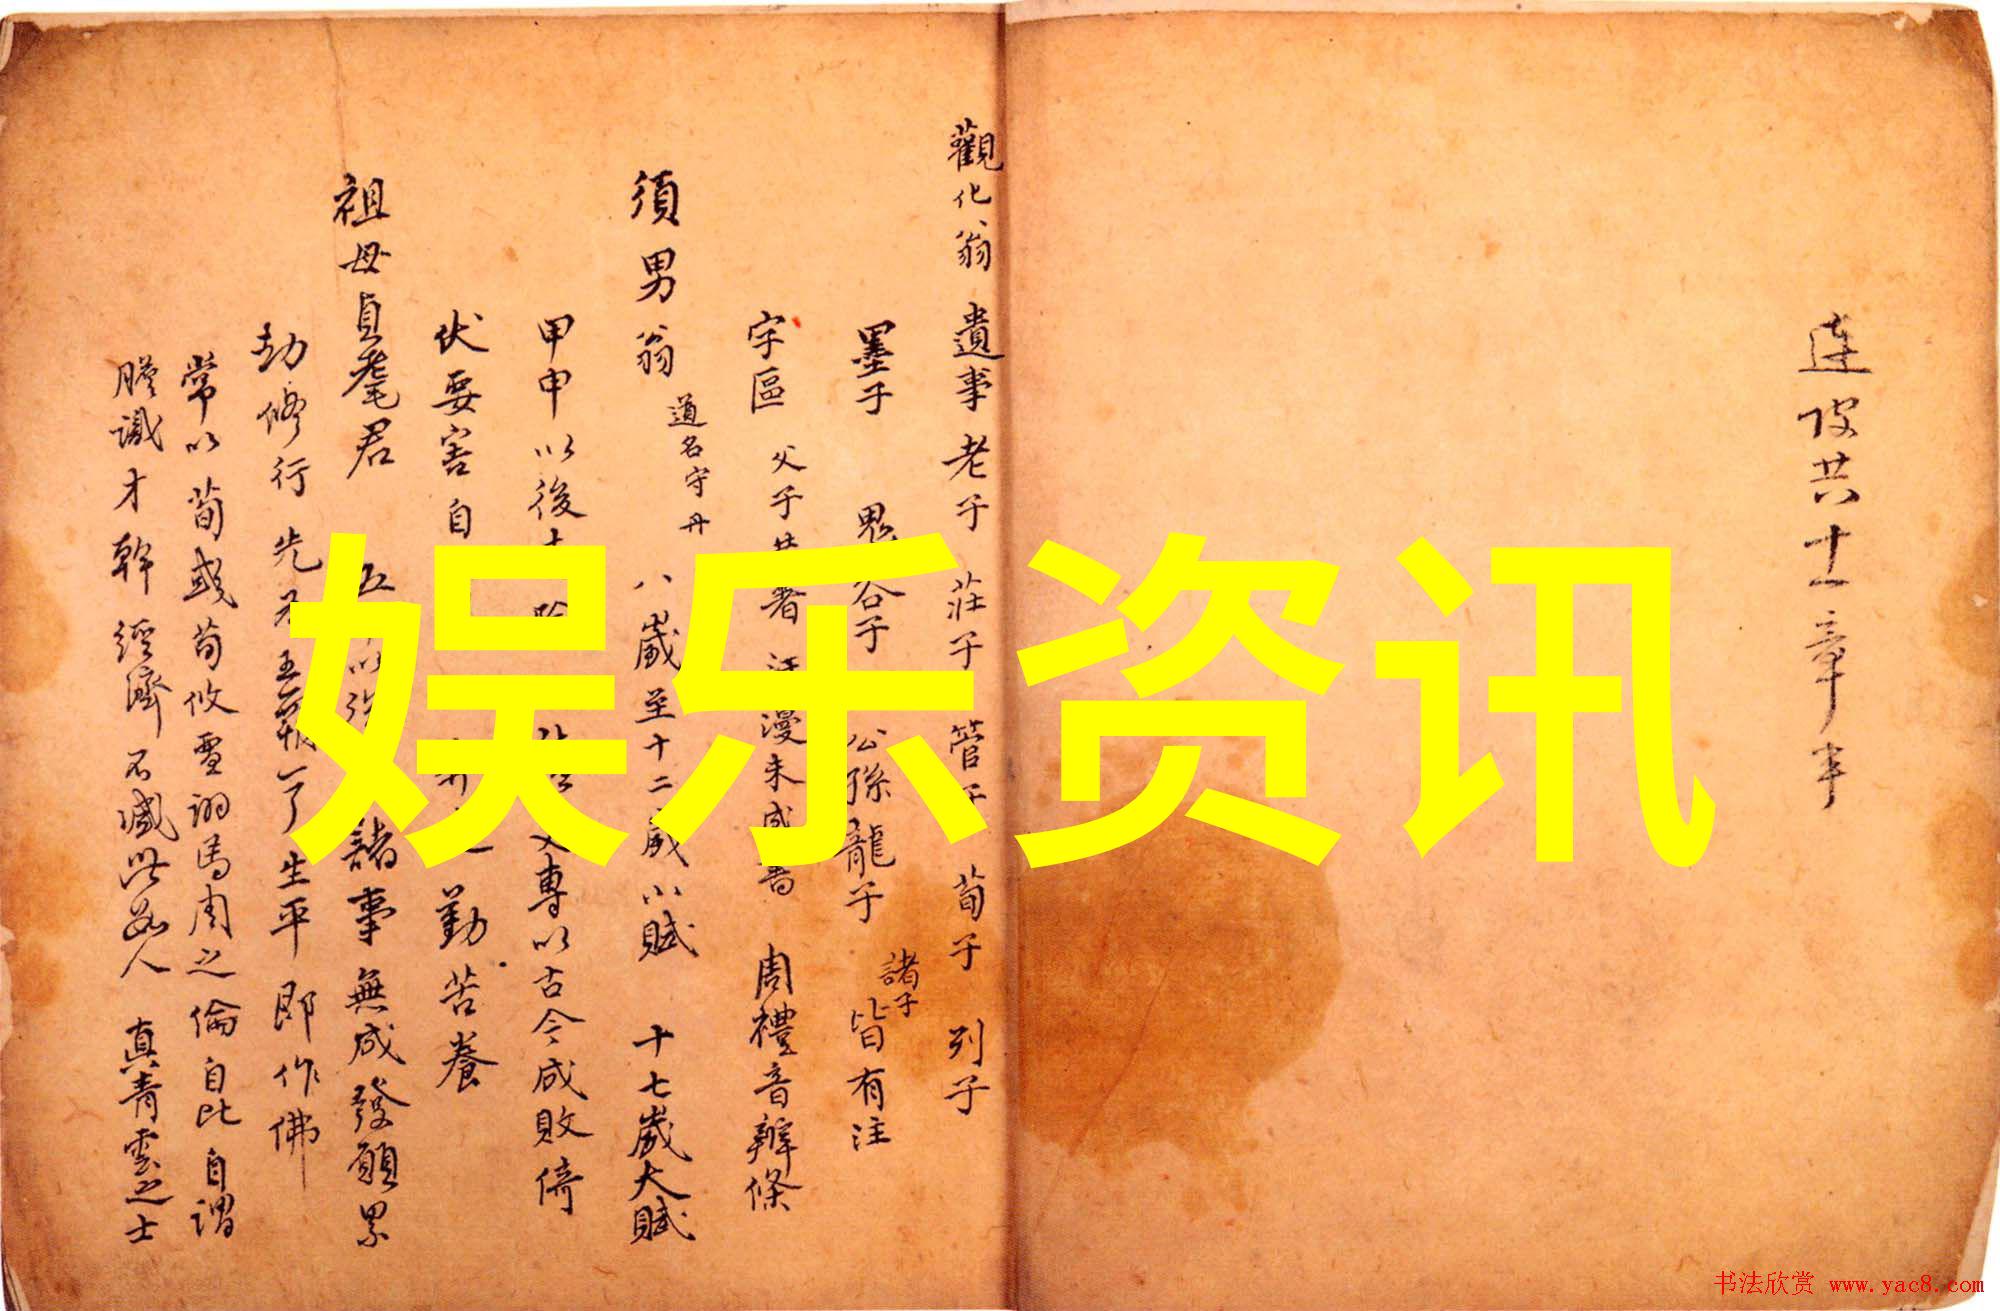 連皮共十一章半
觀化翁 遺事 老子 莊子 管子 荀子 列子
墨子 鬼谷子 公孫龍子 諸子 皆有注
字區 父子共著 汗漫未成書 周禮音辨條
須男翁 道名守丹 八歲至十二歲小賦 十七歲大賦
甲申以後 專以古今成敗倚
伏要害自 勤苦養
祖母貞耄君 五 以 諸事無成發願累
劫修行先 了生平即作佛
常以荀彧荀攸賈詡馬周之倫自比自謂
膽識才幹經濟不減此數人 真青雲之士
娱乐资讯
书法欣赏 www.yac8.com